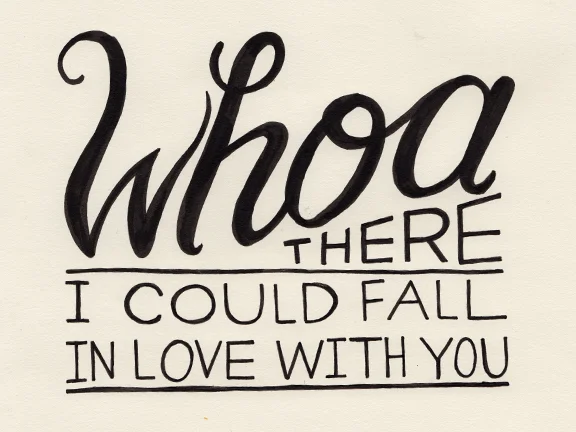 Whoa
THERE
I COULD FALL
IN LOVE WITH YOU